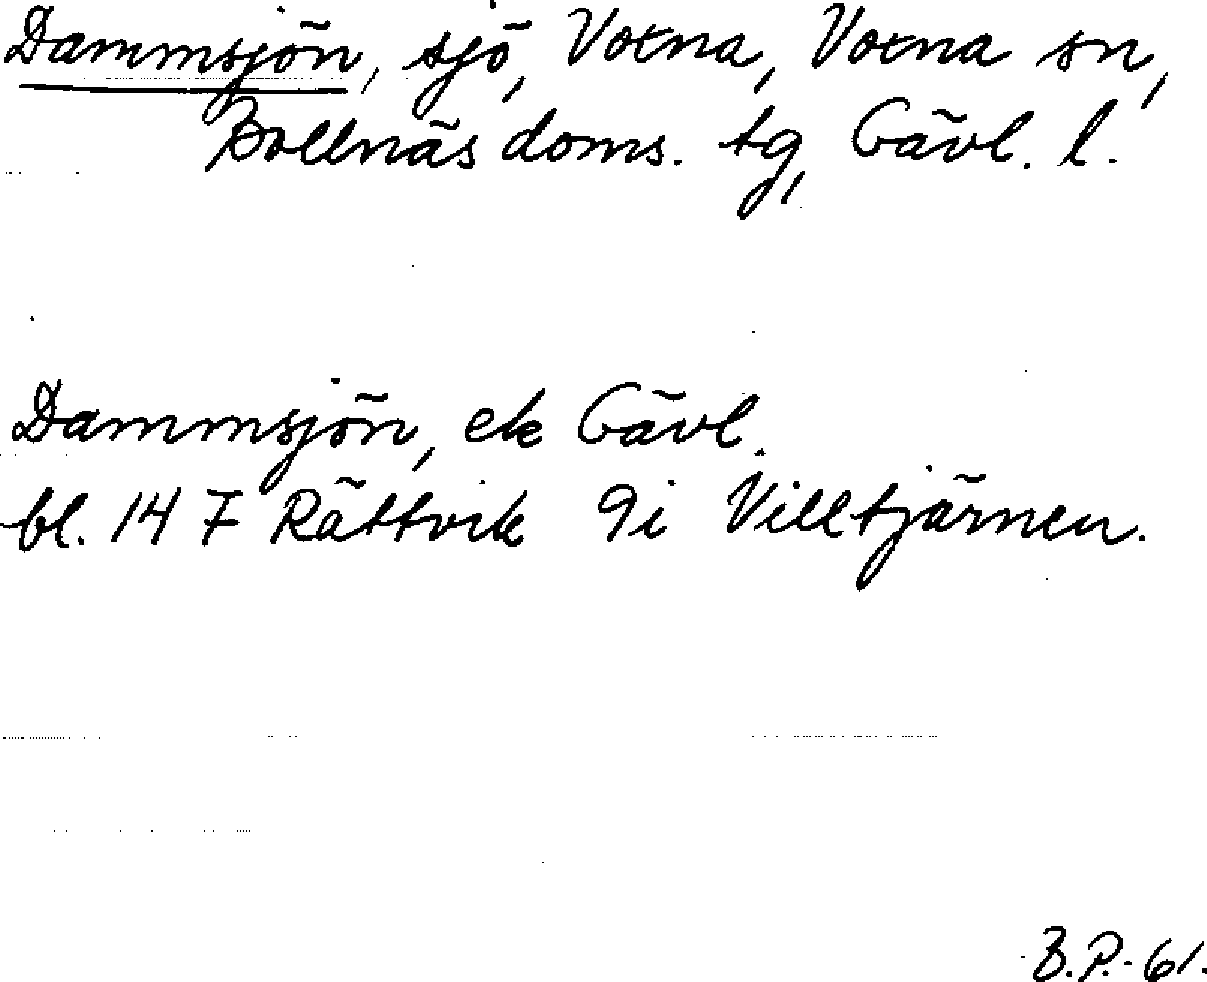 Dammsjön, sjö, Voxna, Voxna sn,
Bollnäs doms. tg, Gävl. l.
Dammsjön, ek Gävl.
bl. 14 F Rättvik 9i Villtjärnen.
B.P.-61.